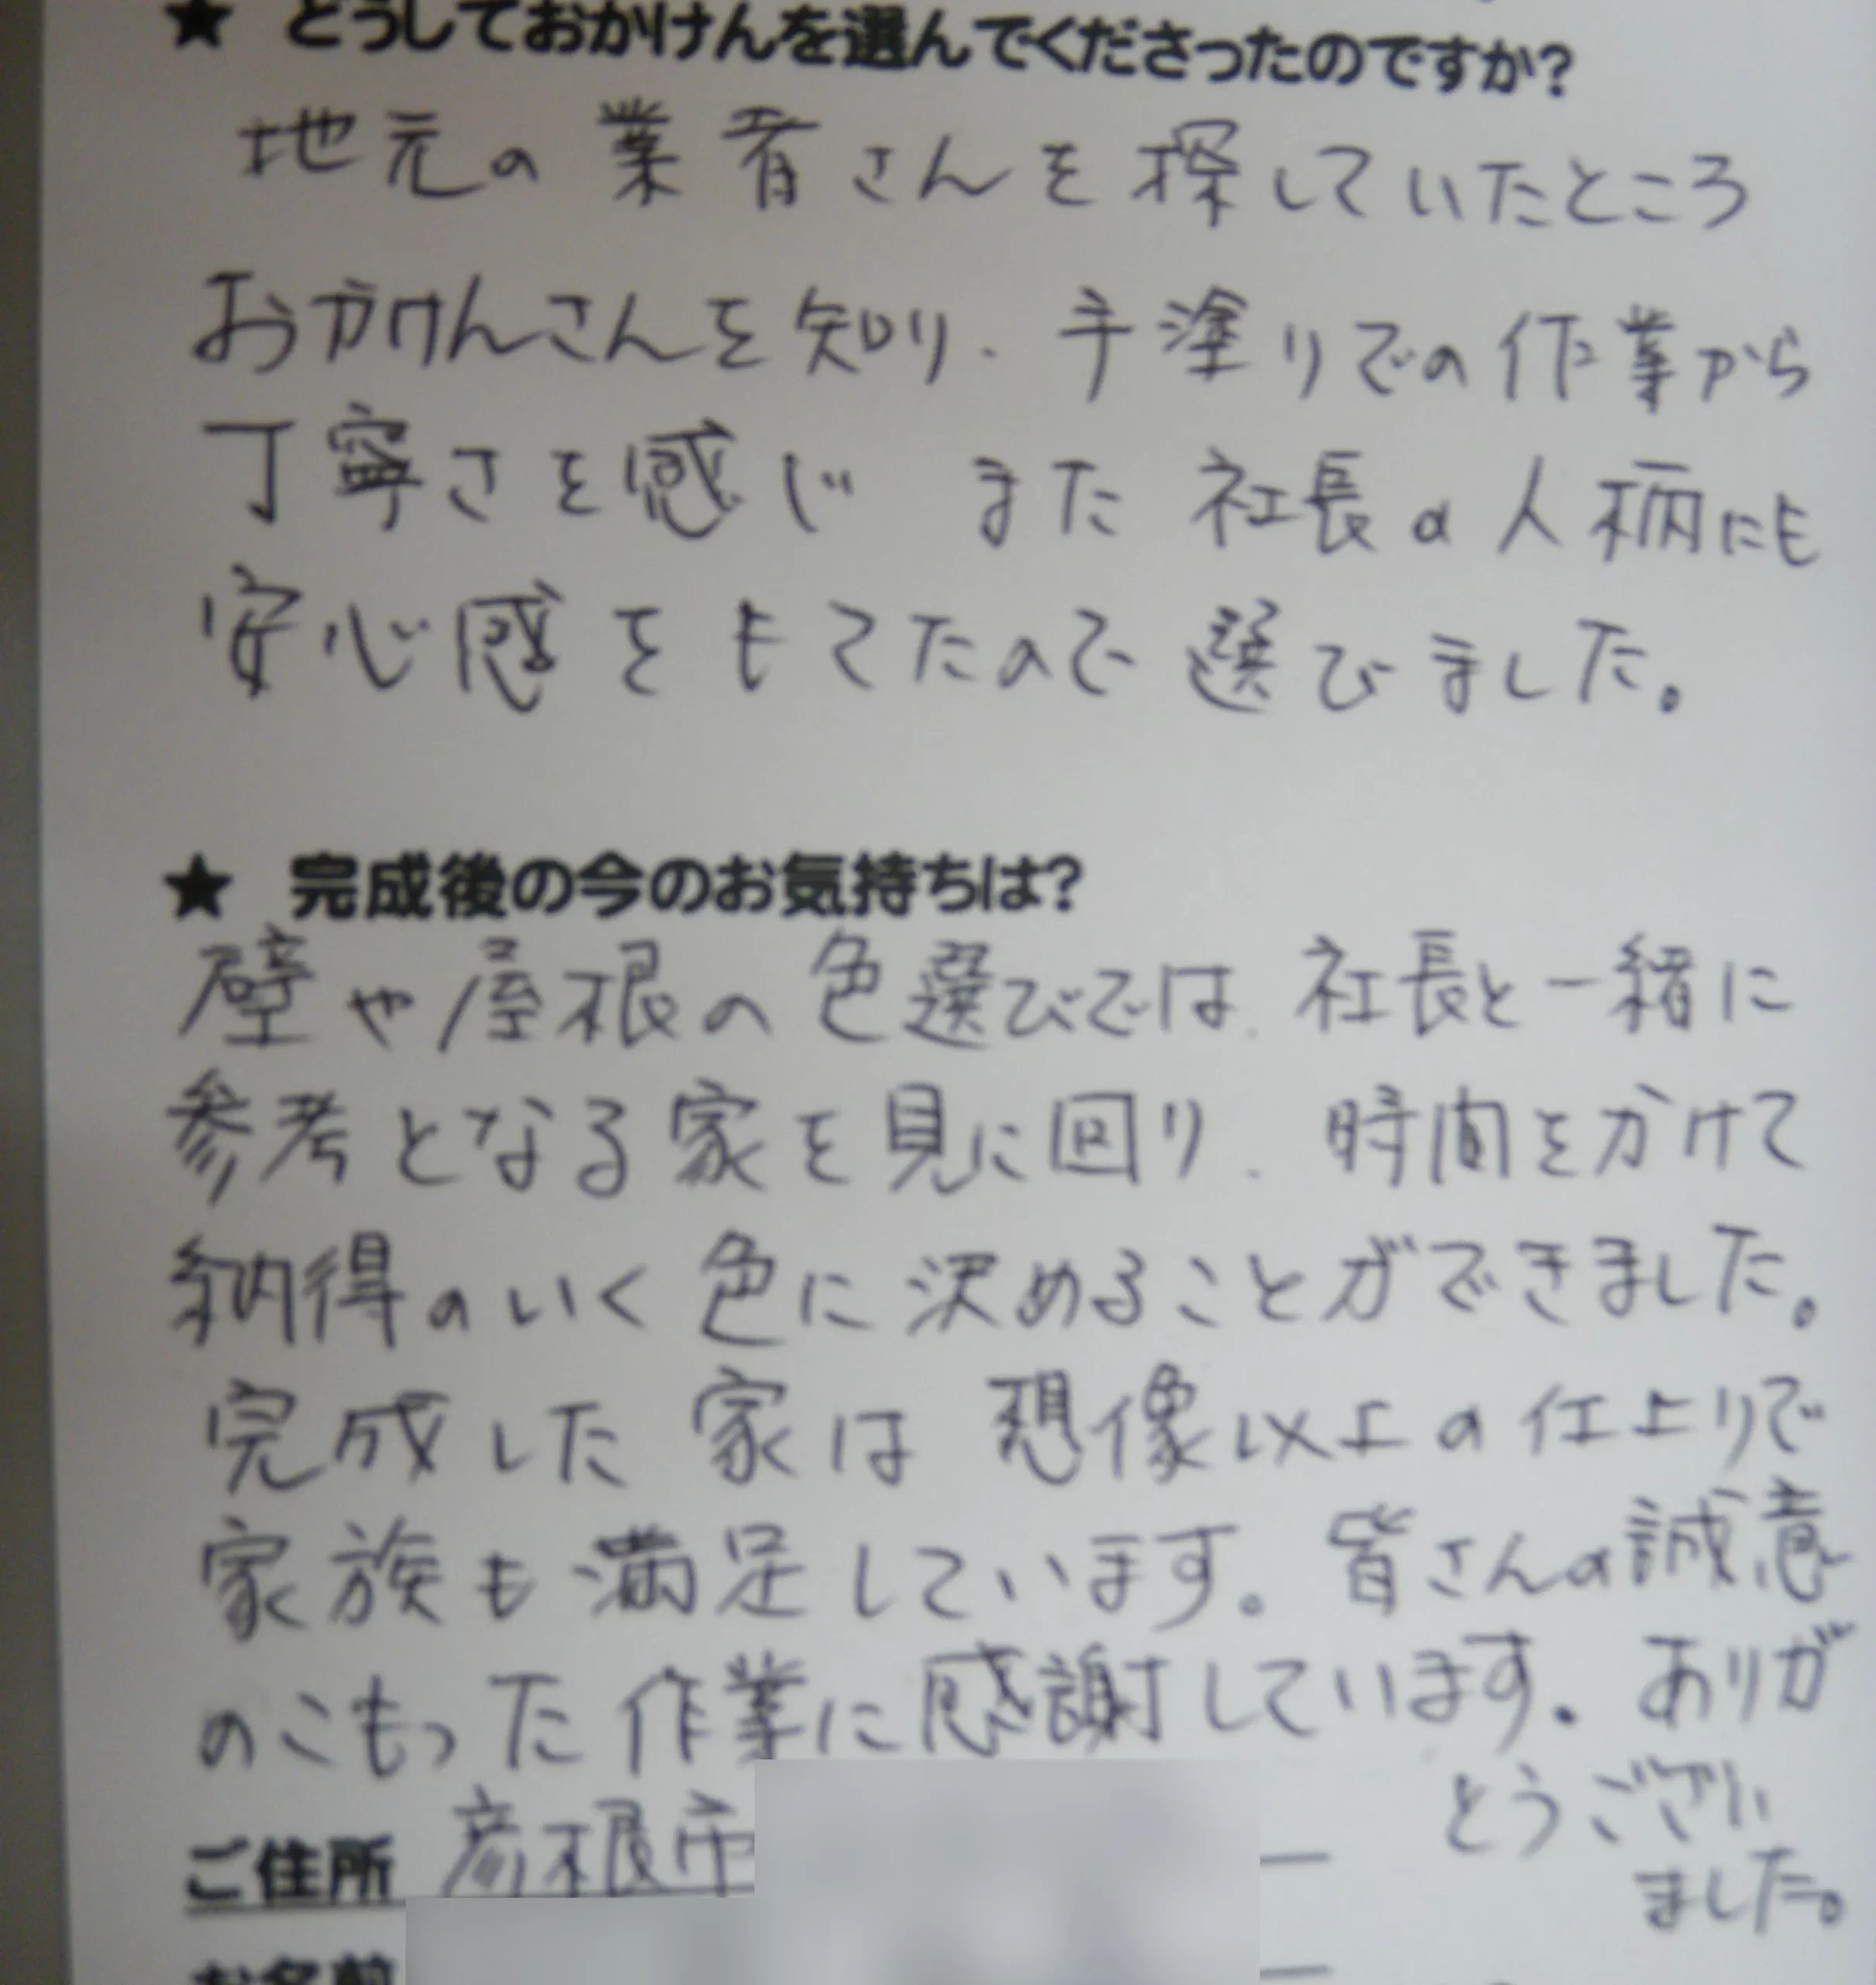 ★ どうしておかけんを選んでくださったのですか?
地元の業者さんを探していたところ
おかけんさんを知り、手塗りでの作業から
丁寧さを感じ また 社長の人柄にも
安心感をもてたので選びました。
★ 完成後の今のお気持ちは?
壁や屋根の色選びでは、社長と一緒に
参考となる家を見に回り、時間をかけて
納得のいく色に決めることができました。
完成した家は想像以上の仕上りで
家族も満足しています。皆さんの誠意
のこもった作業に感謝しています。ありが
とうござい
ました。
ご住所 彦根市
お名前